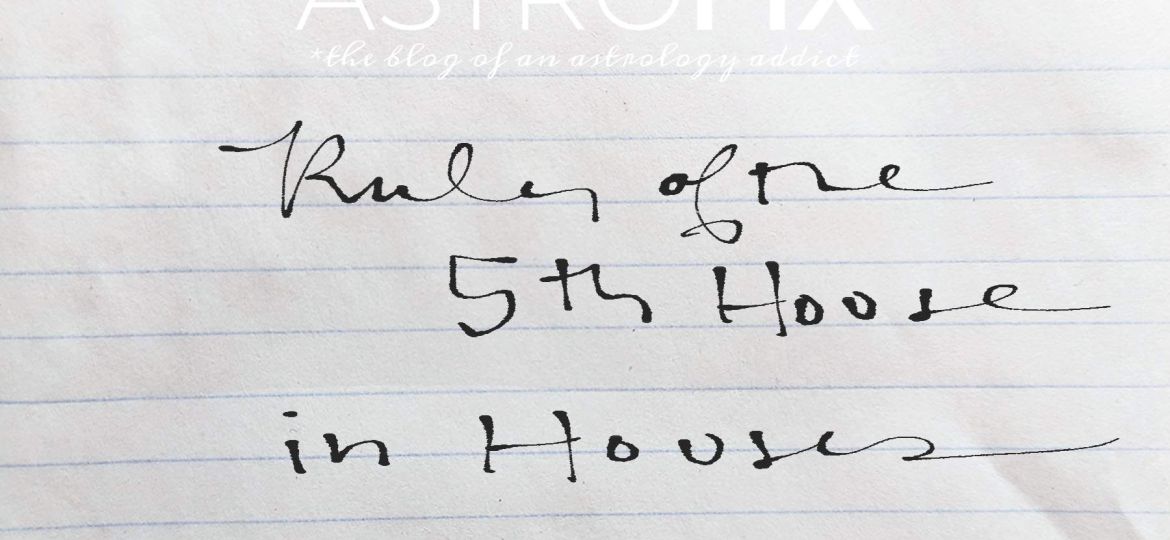 ASTROFIX
*the blog of an astrology addict
Ruler of the
5th House
in Houses